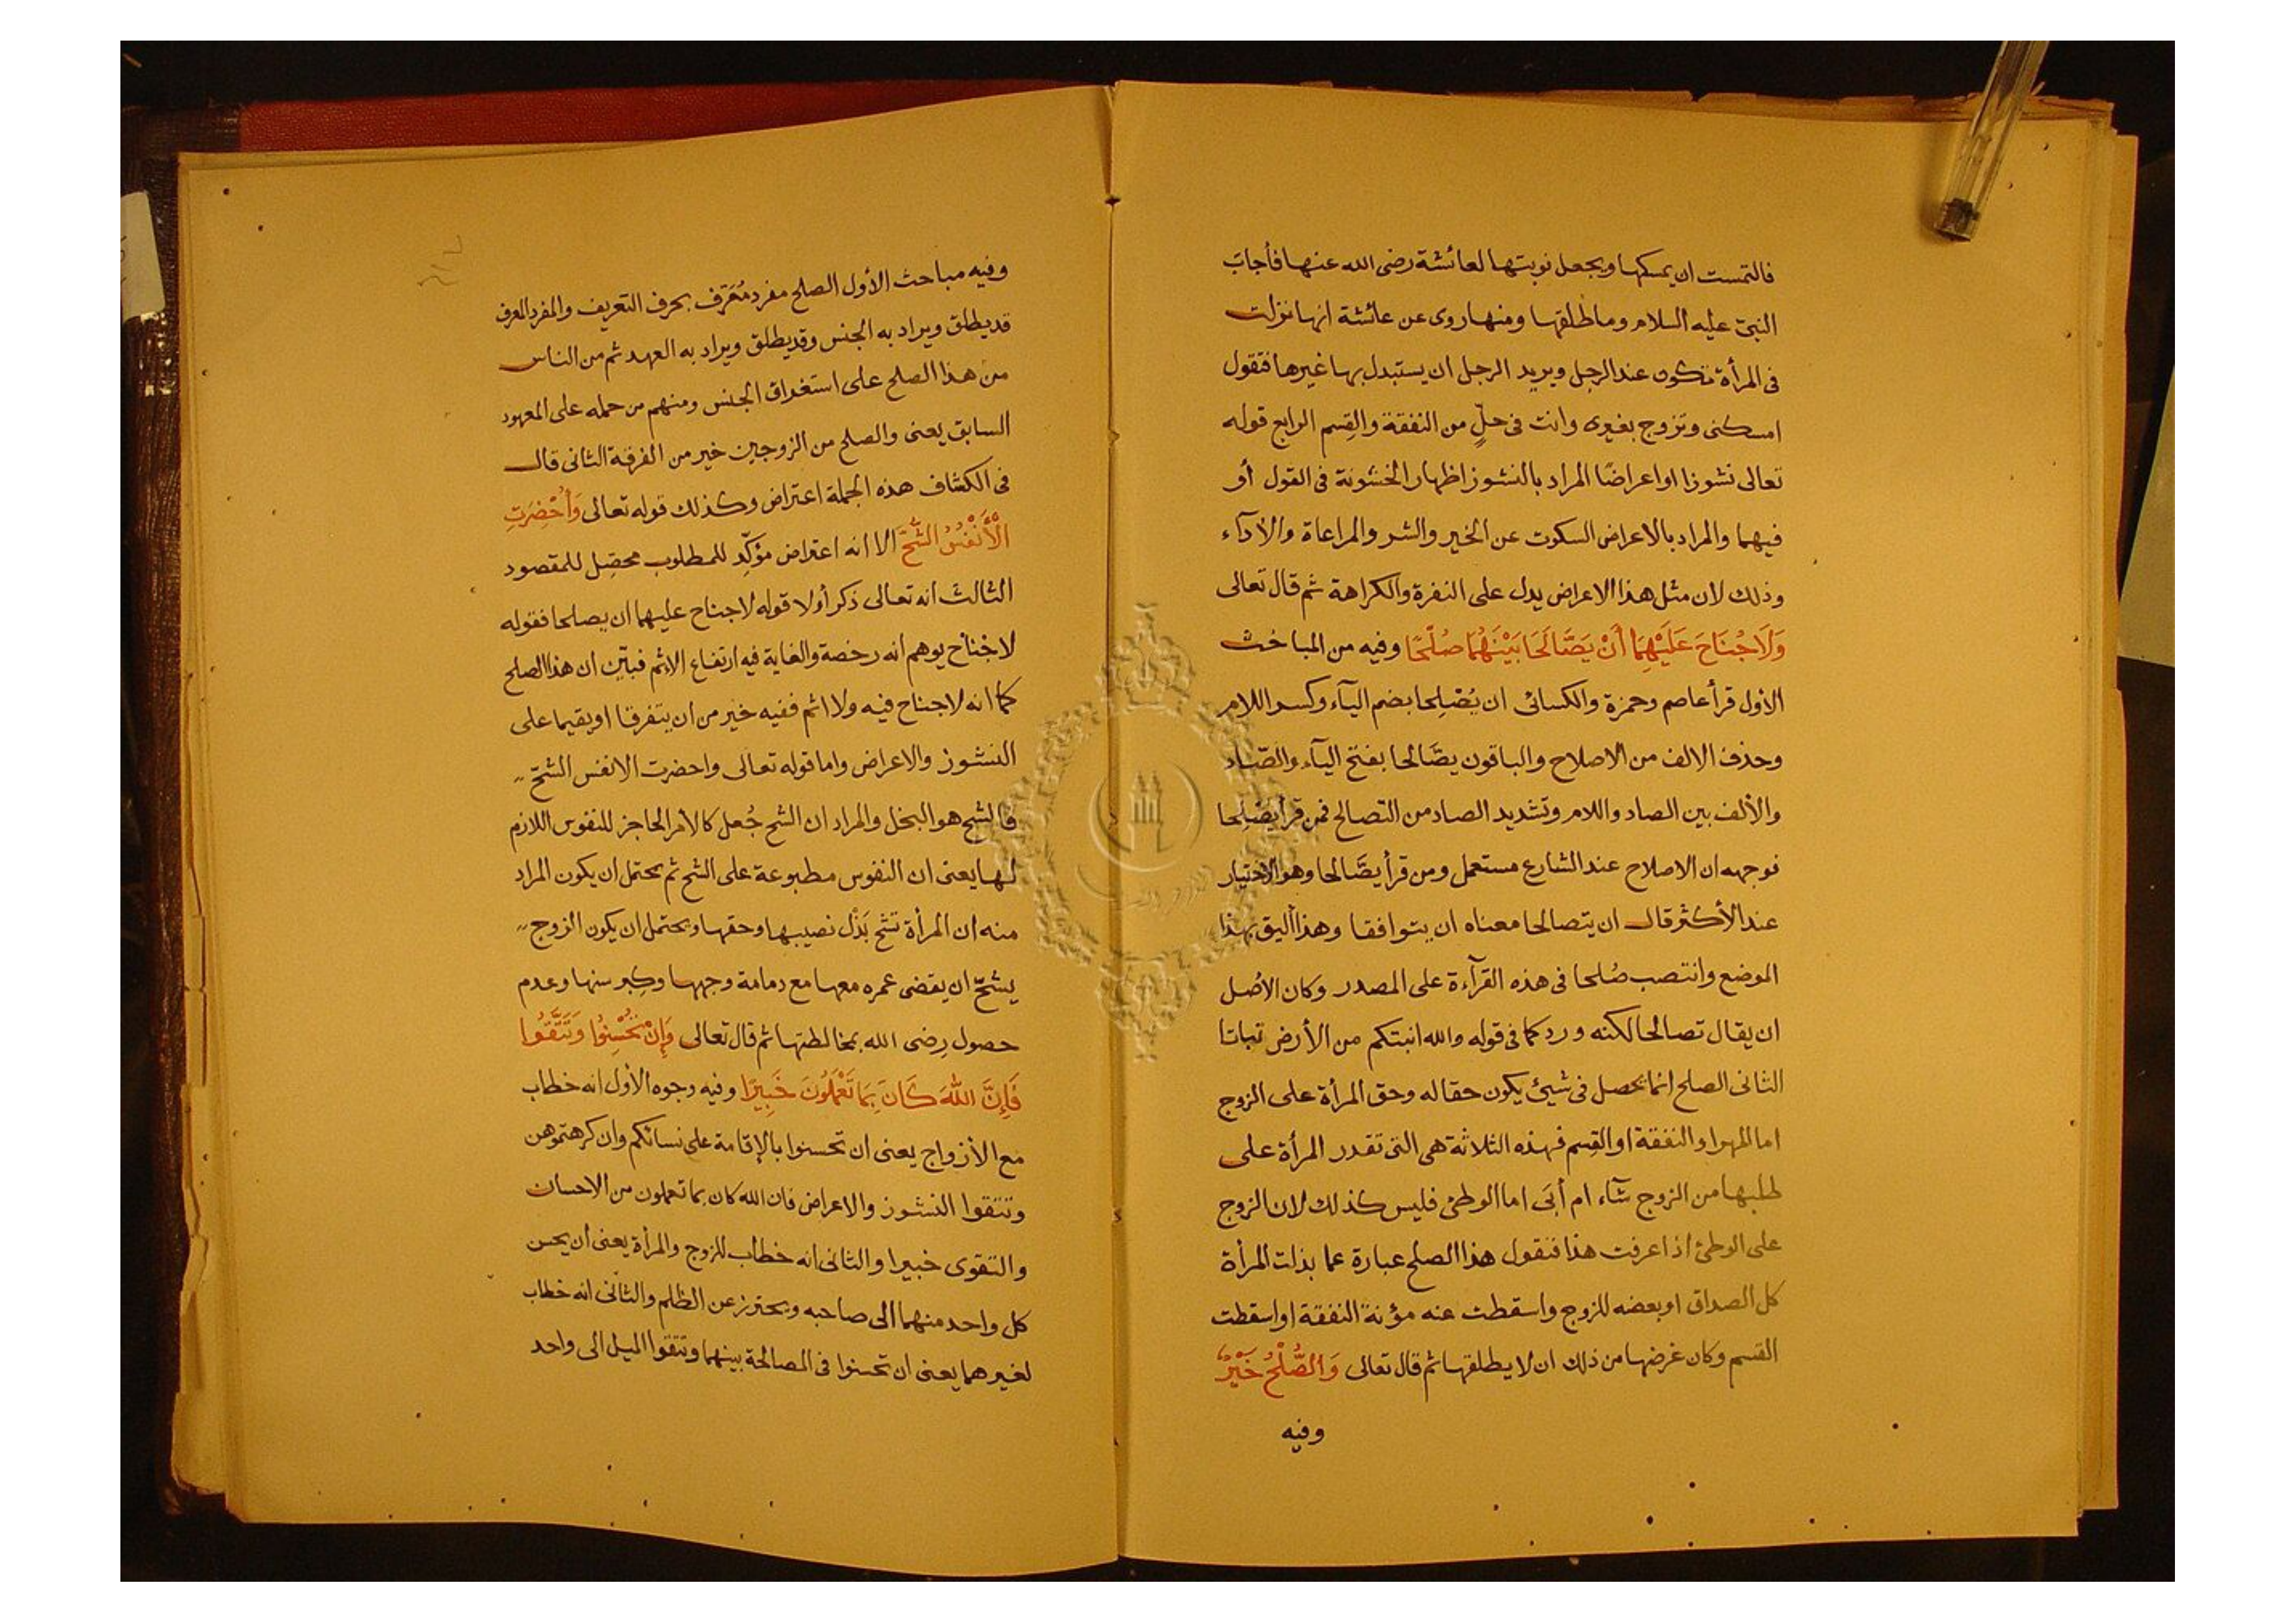 فالتمست ان يمسكها ويجعل نوبتها لعائشة رضى الله عنها فأجاب
النبىّ عليه السلام وما طلقها ومنها روى عن عائشة انها نزلت
فى المرأة تكون عند الرجل ويريد الرجل ان يستبدل بها غيرها فتقول
امسكنى وتزوج بغيرى وانت فى حلٍّ من النفقة والقِسم الرابع قوله
تعالى نشوزا او اعراضًا المراد بالنشوز اظهار الخشونة فى القول أو
فيهما والمراد بالاعراض السكوت عن الخير والشر والمراعاة والأذآء
وذلك لان مثل هذا الاعراض يدل على النفرة والكراهة ثم قال تعالى
وَلَا جُنَاحَ عَلَيْهِمَا أَنْ يَصَّالَحَا بَيْنَهُمَا صُلْحًا وفيه من المباحث
الأول قرأ عاصم وحمزة والكسائى ان يُصْلِحا بضم اليآء وكسر اللام
وحذف الالف من الاصلاح والباقون يصَّالحا بفتح اليآء والصّاد
والألف بين الصاد واللام وتشديد الصاد من التصالح فمن قرأ يُصْلِحا
فوجهه ان الاصلاح عند الشارع مستعمل ومن قرأ يصَّالحا وهو الاختيار
عند الأكثر قال ان يتصالحا معناه ان يتوافقا وهذا أليق بهذا
الموضع وانتصب صُلحا فى هذه القرآءة على المصدر وكان الأصل
ان يقال تصالحا لكنه ورد كما فى قوله والله انبتكم من الأرض نباتا
الثانى الصلح انما يحصل فى شيئ يكون حقا له وحق المرأة على الزوج
اما المهر او النفقة او القِسم فهذه الثلاثة هى التى تقدر المرأة على
طلبها من الزوج شآء ام أبَى اما الوطئ فليس كذلك لان الزوج
على الوطئ اذا عرفت هذا فنقول هذا الصلح عبارة عما بذلت المرأة
كل الصداق او بعضه للزوج واسقطت عنه مؤنة النفقة او اسقطت
القسم وكان غرضها من ذلك ان لا يطلقها ثم قال تعالى وَالصُّلْحُ خَيْرٌ
وفيه
وفيه مباحث الأول الصلح مفرد مُعَرَّف بحرف التعريف والمفرد المعرف
قد يطلق ويراد به الجنس وقد يطلق ويراد به العهد ثم من الناس
من هذا الصلح على استغراق الجنس ومنهم من حمله على المعهود
السابق يعنى والصلح من الزوجين خير من الفرقة الثانى قال
فى الكشاف هذه الجملة اعتراض وكذلك قوله تعالى وَأُحْضِرَتِ
الْأَنْفُسُ الشُّحَّ الا انه اعتراض مؤكِّد للمطلوب محصِل للمقصود
الثالث انه تعالى ذكر أولا قوله لا جناح عليهما ان يصلحا فقوله
لا جناح يوهم انه رخصة والغاية فيه ارتفاع الاثم فبيّن ان هذا الصلح
كما انه لا جناح فيه ولا اثم ففيه خير من ان يتفرقا او يقيما على
النشوز والاعراض واما قوله تعالى واحضرت الانفس الشحّ
فالشح هو البخل والمراد ان الشح جُعل كالأمر الحاجز للنفوس اللازم
لها يعنى ان النفوس مطبوعة على الشح ثم يحتمل ان يكون المراد
منه ان المرأة تشح بَذْل نصيبها وحقها ويحتمل ان يكون الزوج
يشحّ ان يقضى عمره معها مع دمامة وجهها وكِبر سنها وعدم
حصول رِضى الله بمخالطتها ثم قال تعالى وَإِنْ تُحْسِنُوا وَتَتَّقُوا
فَإِنَّ اللّٰهَ كَانَ بِمَا تَعْمَلُونَ خَبِيرًا وفيه وجوه الأول انه خطاب
مع الأزواج يعنى ان تحسنوا بالإقامة على نسائكم وان كرهتموهن
وتتقوا النشوز والاعراض فان الله كان بما تعملون من الاحسان
والتقوى خبيرا والثانى انه خطاب للزوج والمرأة يعنى أن يحسن
كل واحد منهما الى صاحبه ويحترز عن الظلم والثانى انه خطاب
لغيرهما يعنى ان تحسنوا فى المصالحة بينهما وتتقوا الميل الى واحد